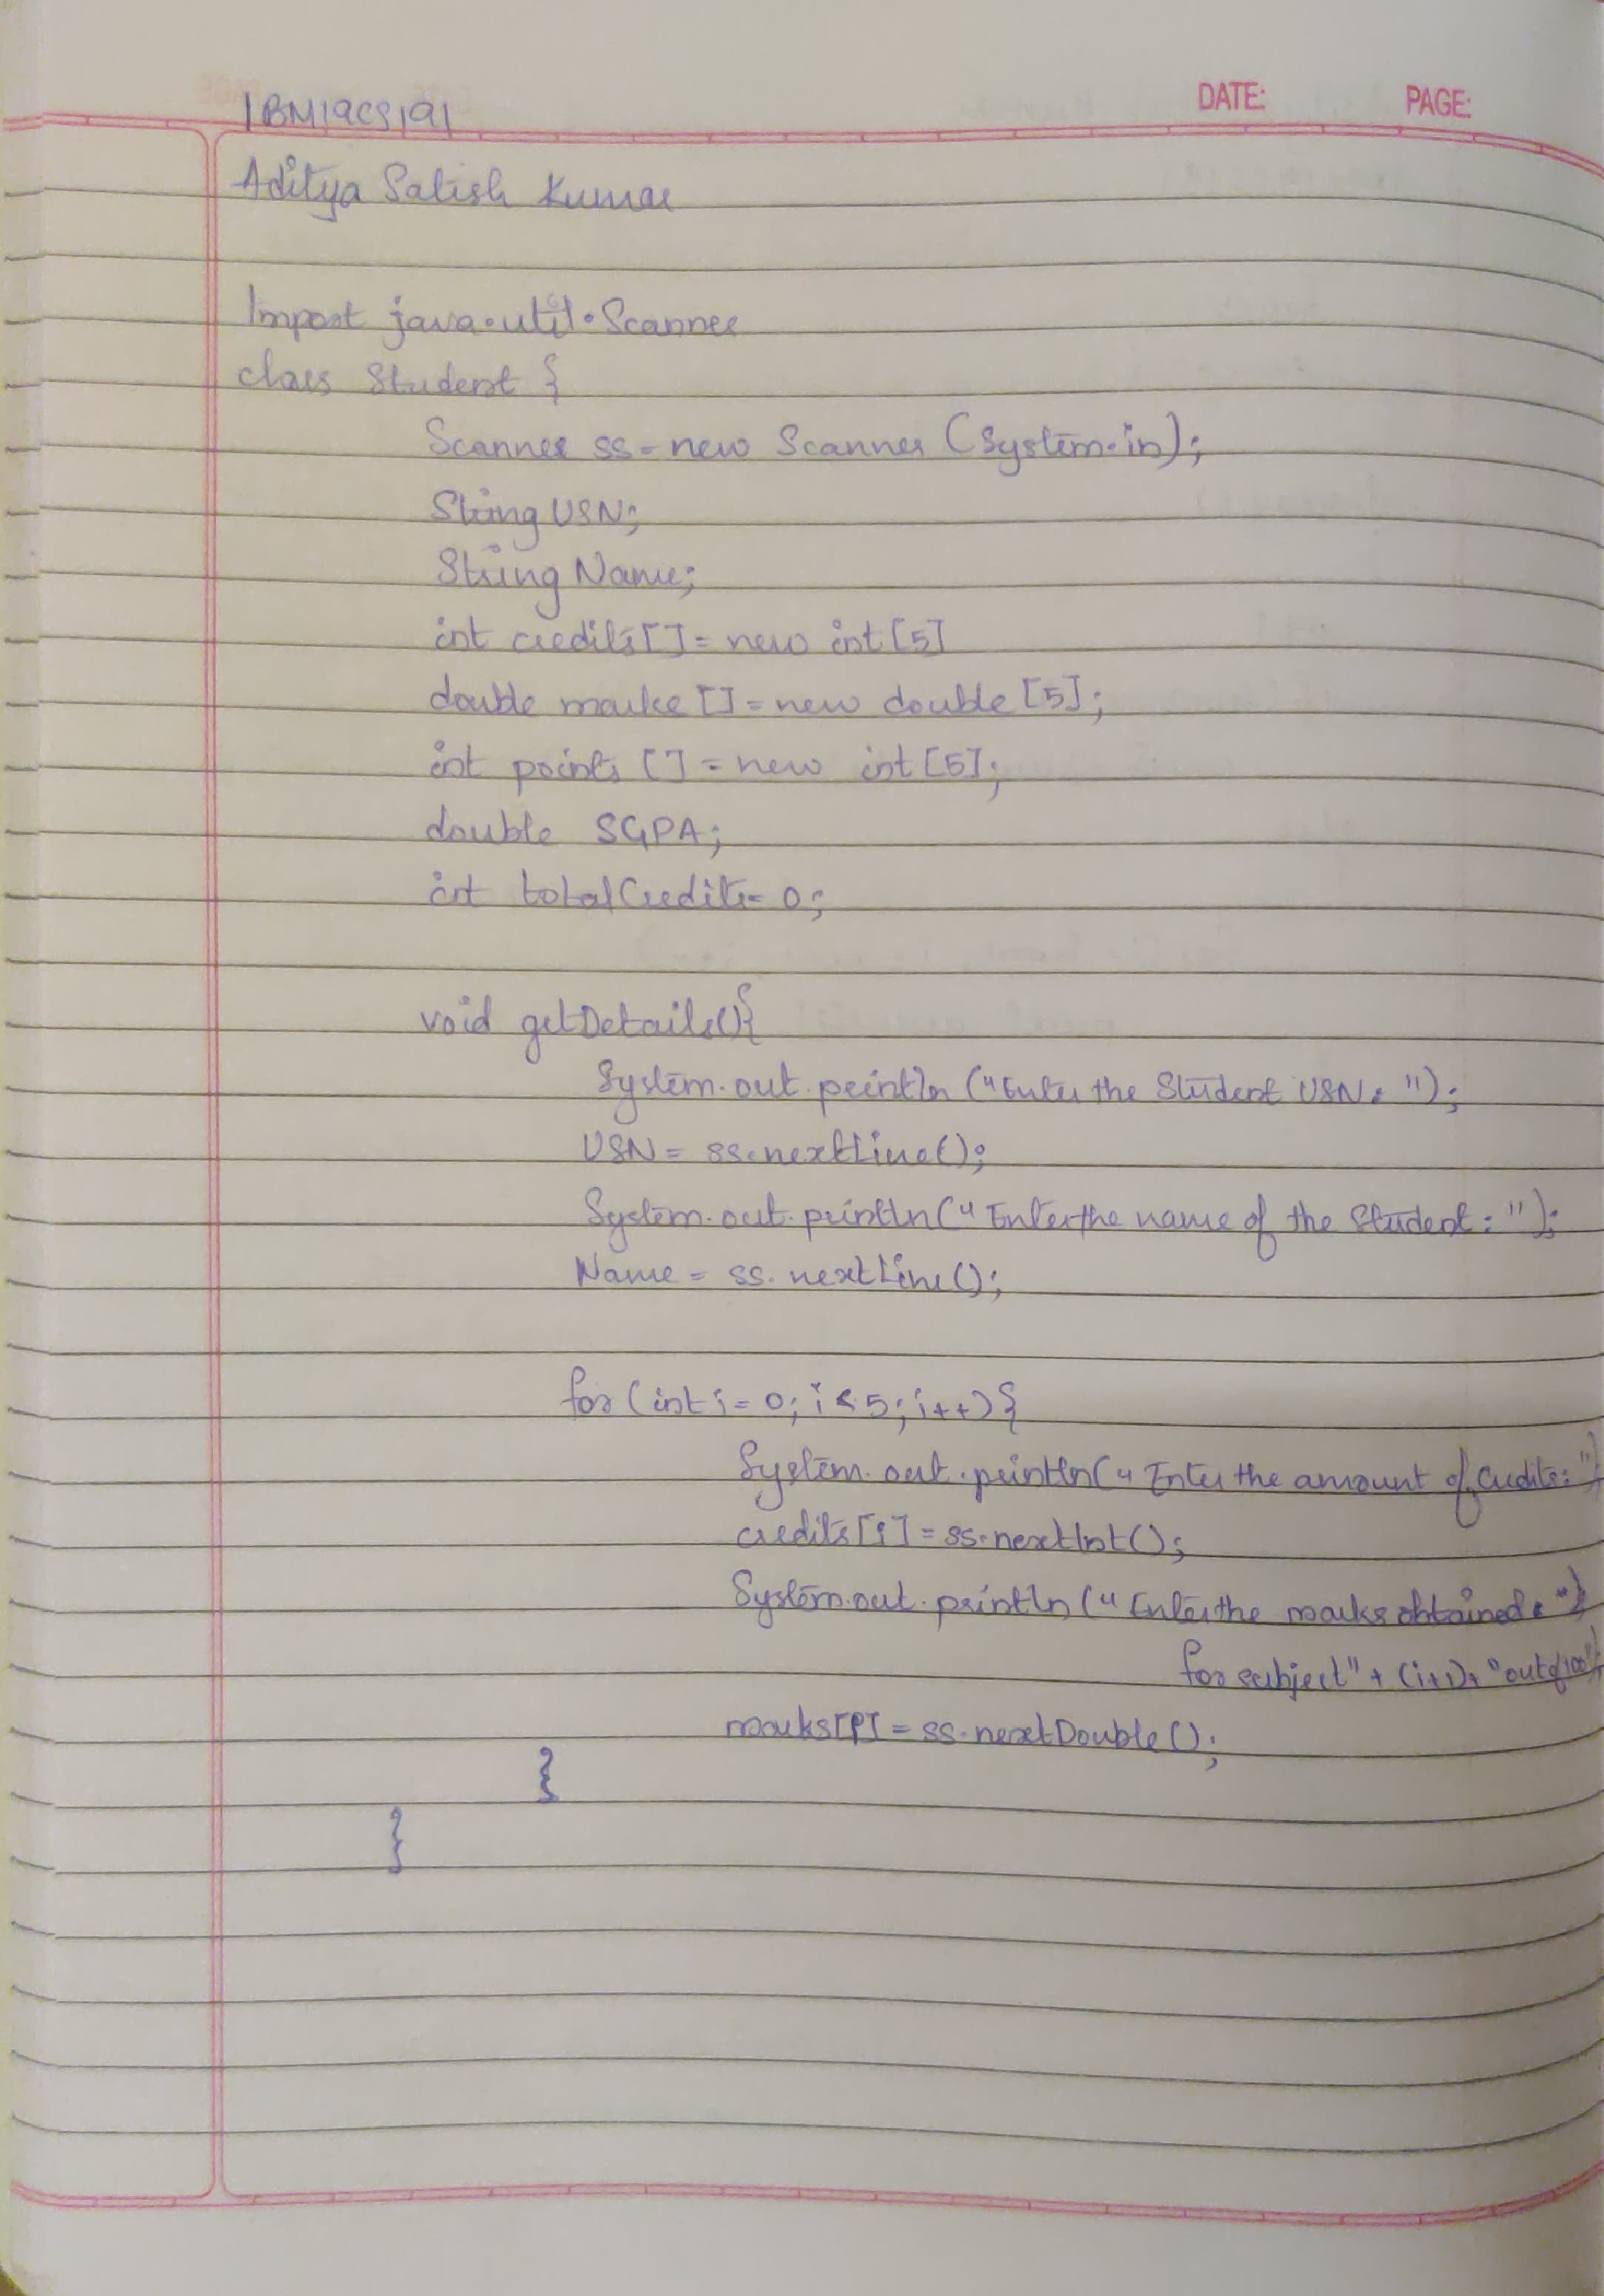 1BM19CS191
DATE: PAGE:
Aditya Satish Kumar
Import java.util.Scanner
class Student {
Scanner ss = new Scanner (System.in);
String USN;
String Name;
int credits[] = new int[5]
double marks [] = new double [5];
int points [] = new int [5];
double SGPA;
int totalCredits = 0;
void getDetails(){
System.out.println ("Enter the Student USN: ");
USN = ss.nextLine();
System.out.println("Enter the name of the Student: ");
Name = ss.nextLine();
for (int i = 0; i < 5; i++) {
System.out.println("Enter the amount of Credits: ")
credits[i] = ss.nextInt();
System.out.println ("Enter the marks obtained
for subject" + (i+1)+ "out of 100")
marks[i] = ss.nextDouble();
}
}